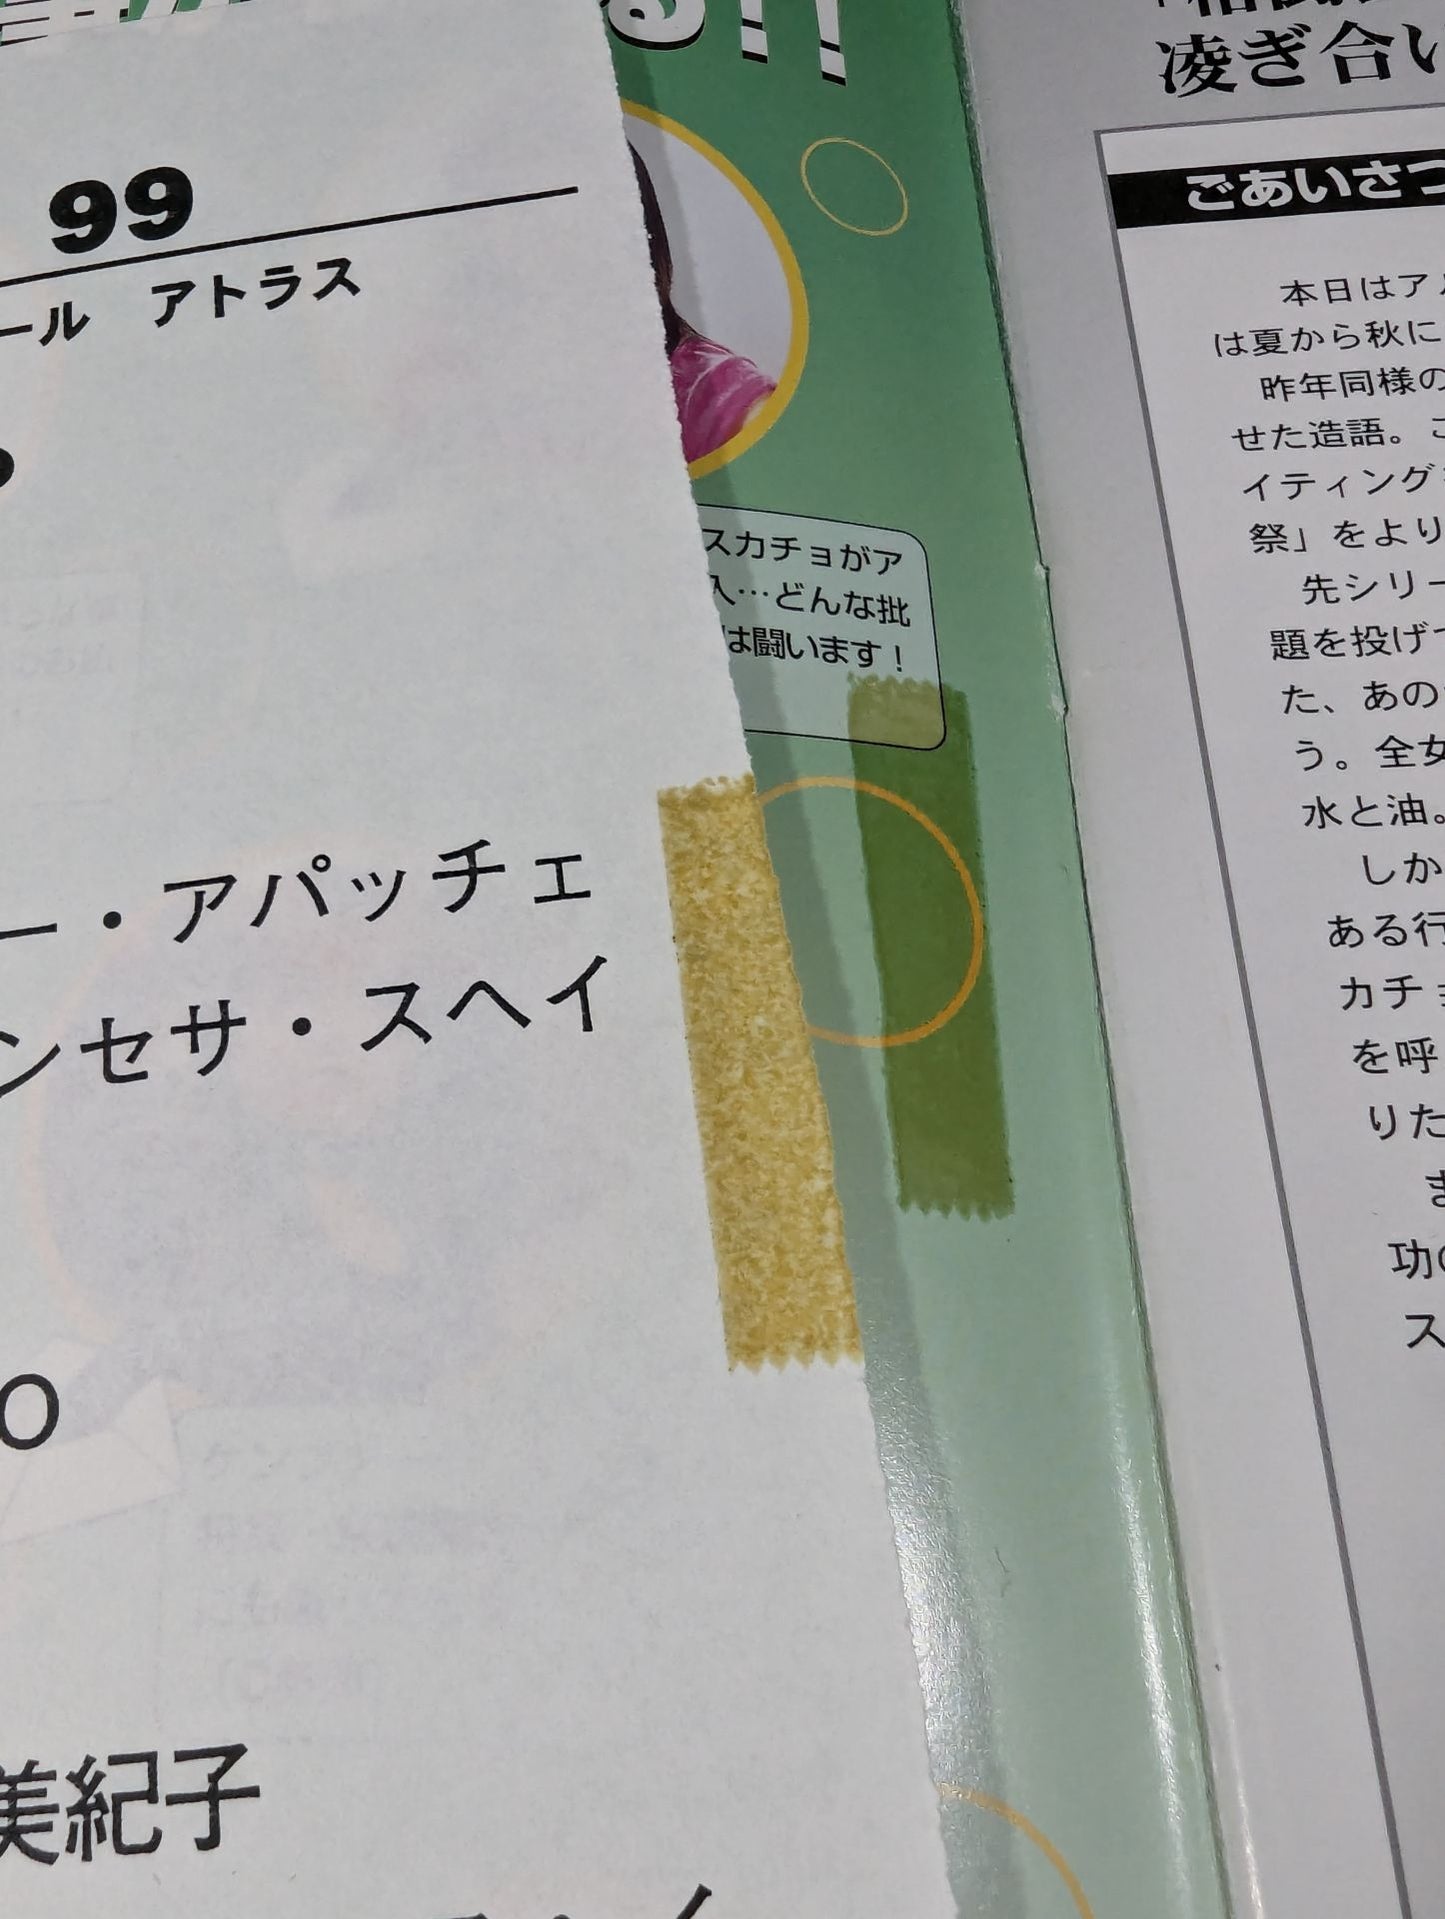 る!!
99
ール アトラス
ー・アパッチェ
ンセサ・スヘイ
O
美紀子
スカチョがア
入…どんな批
は闘います!
凌ぎ合い
ごあいさつ
本日はアル
は夏から秋に
昨年同様の
せた造語。こ
イティング
祭」をより
先シリー
題を投げ
た、あの
う。全女
水と油。
しか
ある行
カチョ
を呼
りた
ま
功の
ス